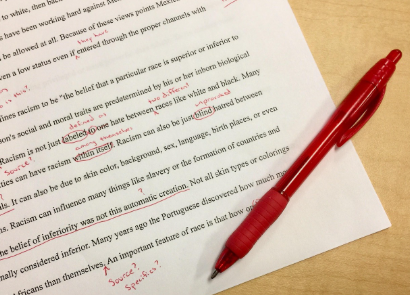 to white, then
have been working hard against
be allowed at all. Because of these views
they have
even a low status even if entered through the proper channels with
defines racism to be "the belief that a particular race is superior or inferior to
son's social and moral traits are predetermined by his or her inborn biological
defined as two different unprovoked
Racism is not just labeled to one hate between races like white and black. Many
Source? among themselves
ties can have racism within itself. Racism can also be just blind hatred between
It can also be due to skin color, background, sex, language, birth places, or even
?
s. Racism can influence many things like slavery or the formation of countries and
the belief of inferiority was not this automatic creation. Not all skin types or colorings
nally considered inferior. Many years ago the Portuguese discovered how much
Africans than themselves. An important feature of race is that how
Source?
Specifics?